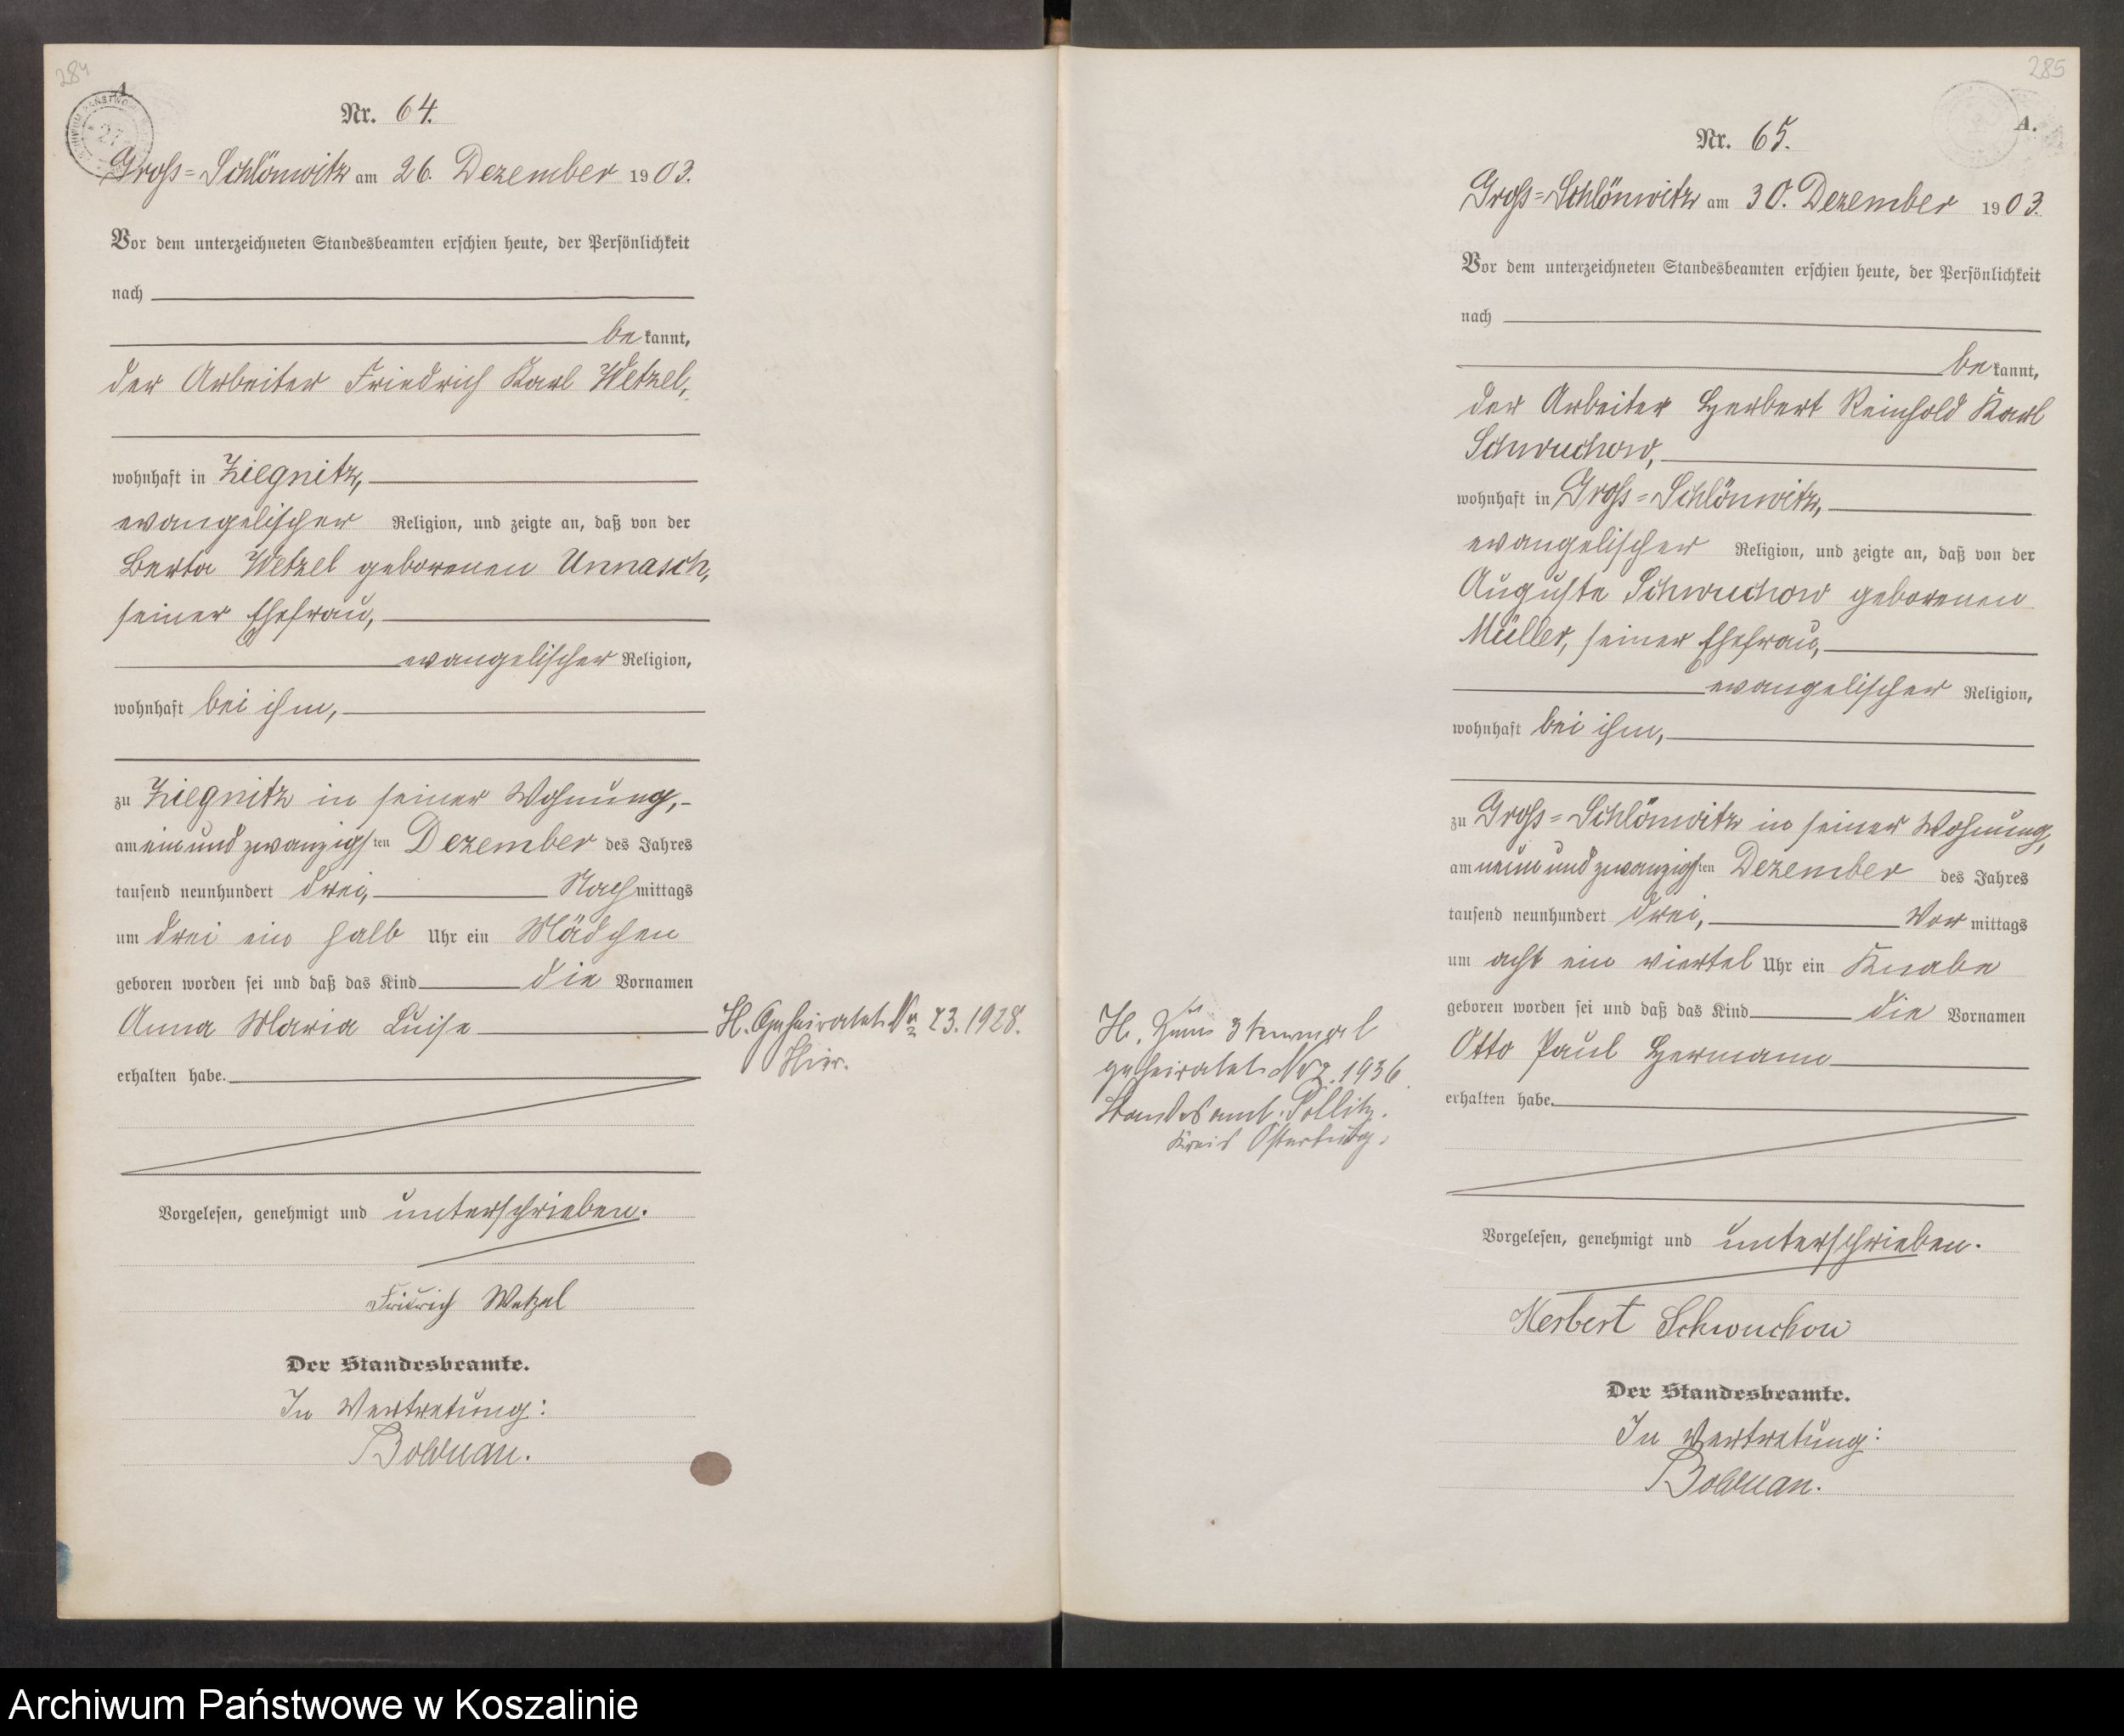 284
A.
Nr. 64.
Groß=Schlönwitz am 26. Dezember 1903.
Vor dem unterzeichneten Standesbeamten erschien heute, der Persönlichkeit
nach
bekannt,
der Arbeiter Friedrich Karl Wetzel,
wohnhaft in Ziegnitz,
evangelischer Religion, und zeigte an, daß von der
Berta Wetzel geborenen Unnasch,
seiner Ehefrau,
evangelischer Religion,
wohnhaft bei ihm,
zu Ziegnitz in seiner Wohnung,
am einundzwanzigsten Dezember des Jahres
tausend neunhundert drei, Nachmittags
um drei ein halb Uhr ein Mädchen
geboren worden sei und daß das Kind die Vornamen
Anna Maria Luise
erhalten habe.
H. Geheiratet Nr. 23.1928.
Hier.
Vorgelesen, genehmigt und unterschrieben.
Fridrich Wetzel
Der Standesbeamte.
In Vertretung:
285
A.
Nr. 65.
Groß=Schlönwitz am 30. Dezember 1903.
Vor dem unterzeichneten Standesbeamten erschien heute, der Persönlichkeit
nach
bekannt,
der Arbeiter Herbert Reinhold Karl
Schwuchow,
wohnhaft in Groß=Schlönwitz,
evangelischer Religion, und zeigte an, daß von der
Auguste Schwuchow geborenen
Müller, seiner Ehefrau,
evangelischer Religion,
wohnhaft bei ihm,
zu Groß=Schlönwitz in seiner Wohnung,
am neunundzwanzigsten Dezember des Jahres
tausend neunhundert drei, Vormittags
um acht ein viertel Uhr ein Knabe
geboren worden sei und daß das Kind die Vornamen
Otto Paul Hermann
erhalten habe.
H. Zum 3tenmal
geheiratet Nr 2.1936
Standesamt Pollitz.
Kreis Osterburg.
Vorgelesen, genehmigt und unterschrieben.
Herbert Schwuchow
Der Standesbeamte.
In Vertretung:
Archiwum Państwowe w Koszalinie